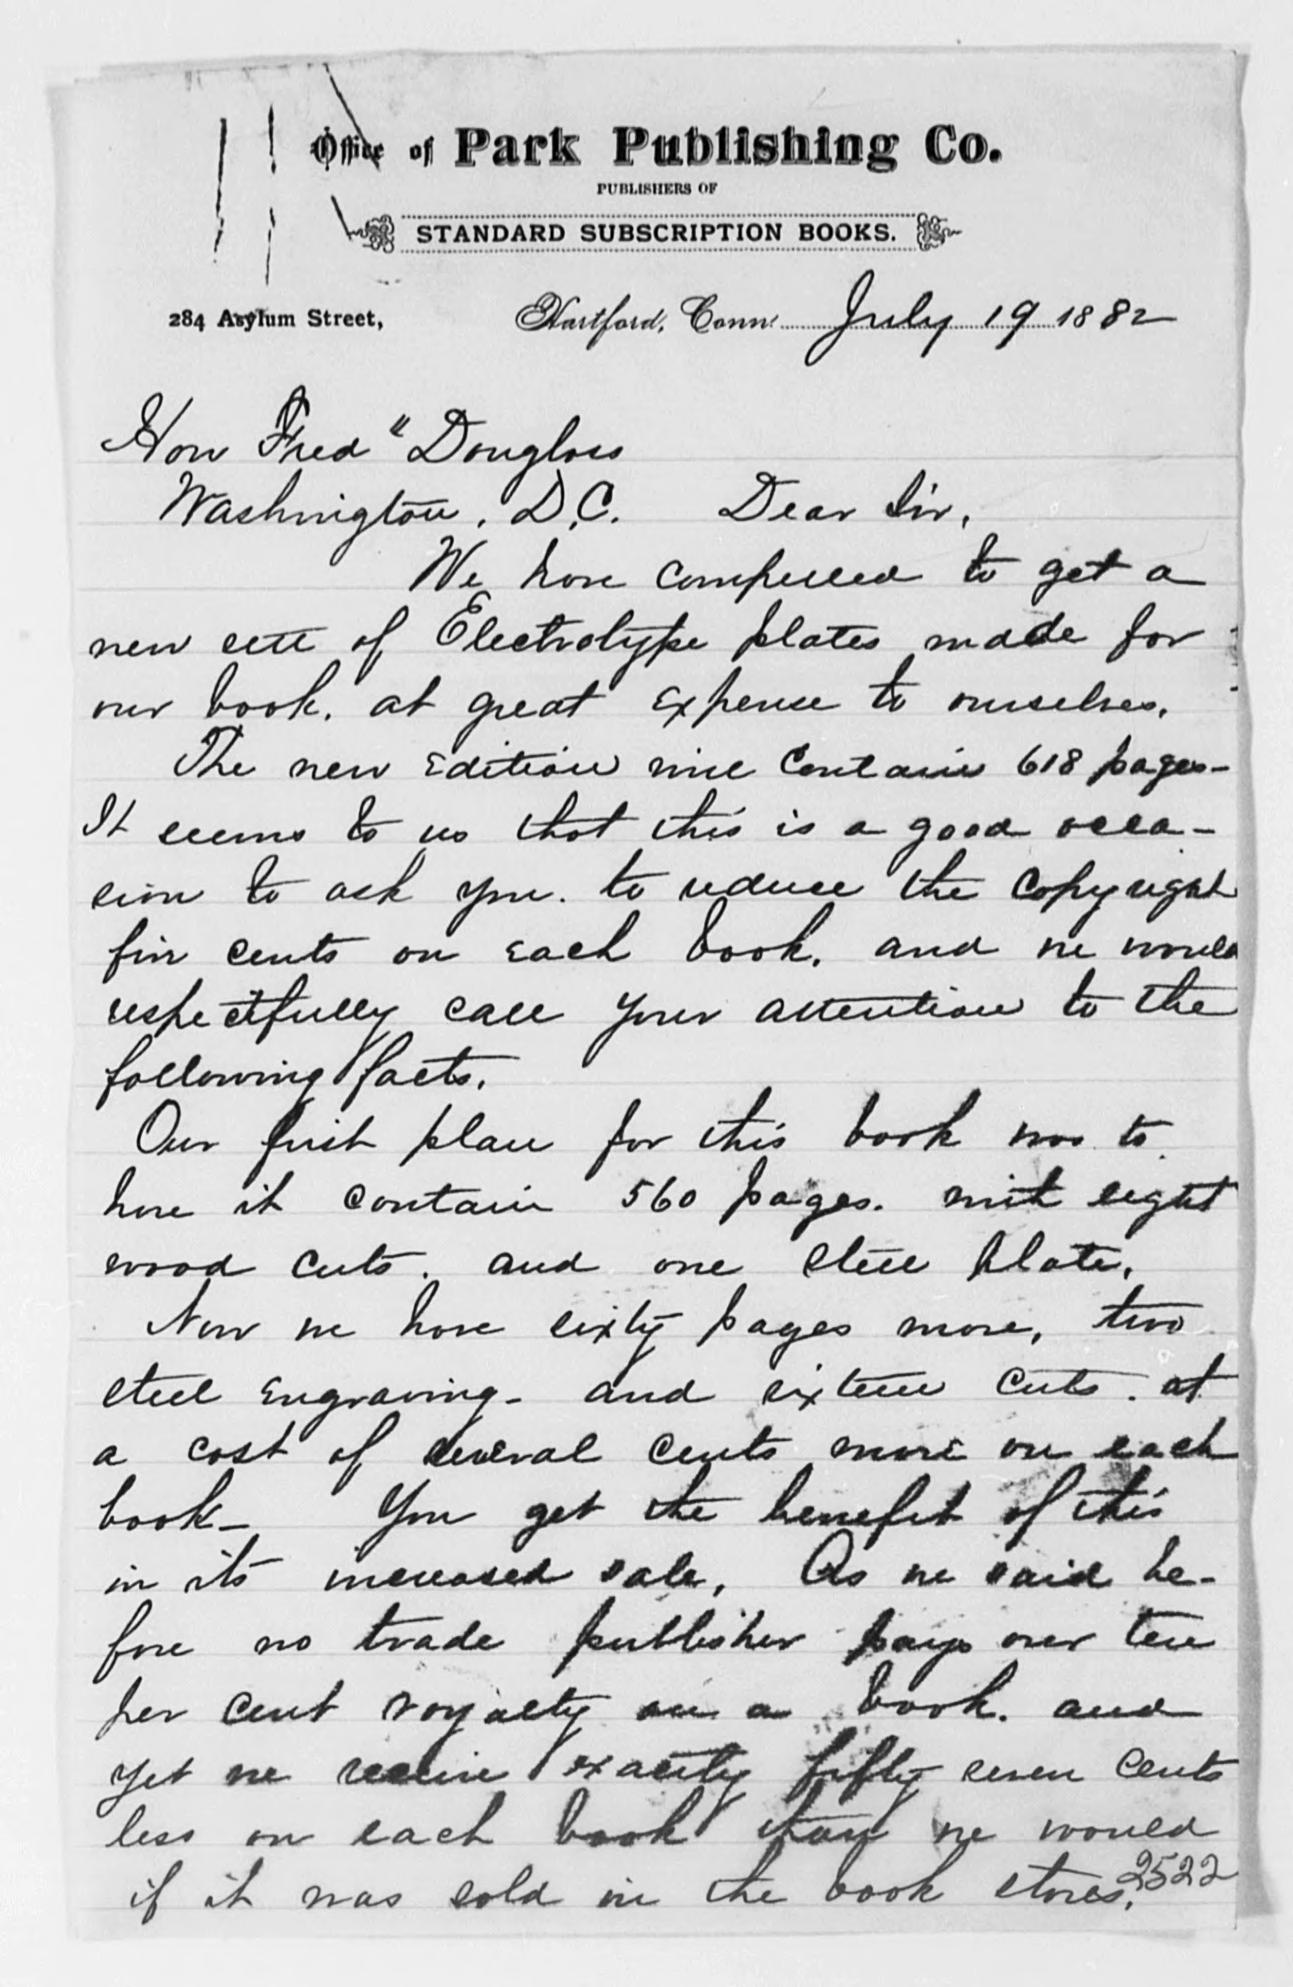 Office of Park Publishing Co.
PUBLISHERS OF
STANDARD SUBSCRIPTION BOOKS.
284 Asylum Street, Hartford, Conn. July 19 1882
Hon Fred" Douglass
Washington, D.C. Dear Sir,
We have compelled to get a
new sett of Electrotype plates made for
our book, at great expense to ourselves.
The new edition will contain 618 pages-
It seems to us that this is a good occa-
sion to ask you. to reduce the copyright
five cents on each book, and we would
respectfully call your attention to the
following facts.
Our first plan for this book was to
have it contain 560 pages. with eight
wood cuts. and one steel plate,
Now we have sixty pages more, two
steel engraving- and sixteen cuts. at
a cost of several cents more on each
book- You get the benefit of this
in its increased sale, As we said be-
fore no trade publisher pays over ten
per cent royalty on a book. and
yet we receive exactly fifty seven cents
less on each book than we would
if it was sold in the book stores.
2522